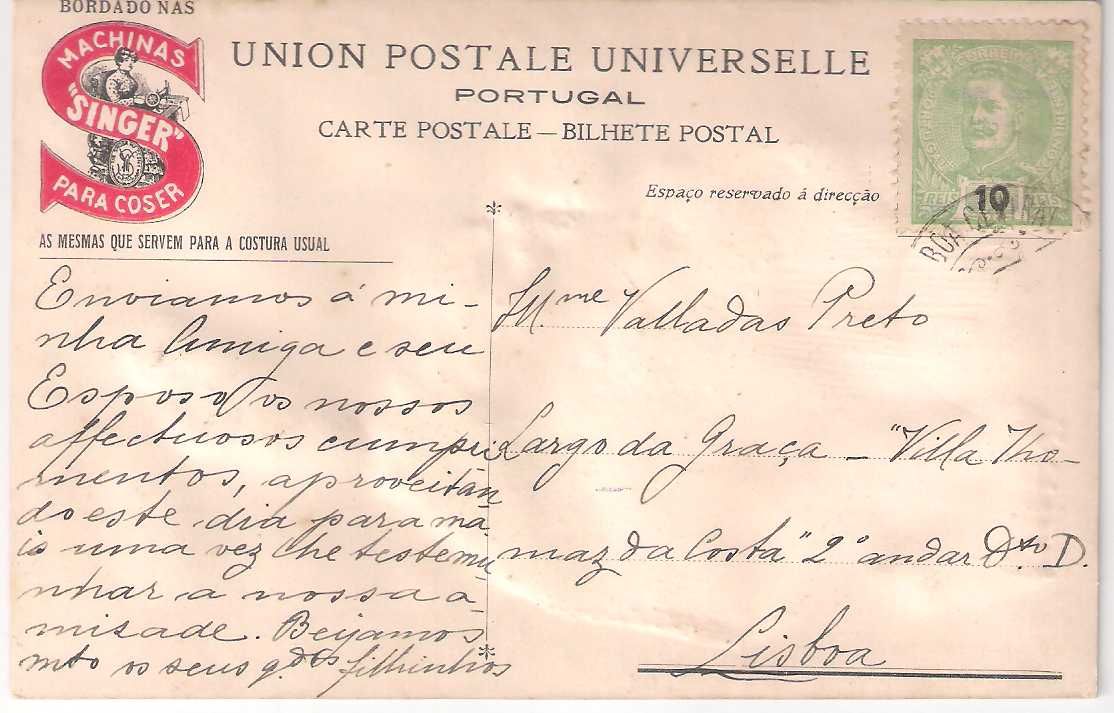 BORDADO NAS
MACHINAS
"SINGER"
PARA COSER
AS MESMAS QUE SERVEM PARA A COSTURA USUAL
UNION POSTALE UNIVERSELLE
PORTUGAL
CARTE POSTALE — BILHETE POSTAL
Espaço reservado á direcção
10
REIS
Enviamos á mi-
nha Amiga e seu
Esposo os nossos
affectuosos cumpri
mentos, aproveitan
do este dia para ma
is uma vez lhe testemu
nhar a nossa a
misade. Beijamos
mto os seus q.dos filhinhos
M.me Valladas Preto
Largo da Graça — "Villa Tho-
maz da Costa" 2º andar Dto D.
Lisboa